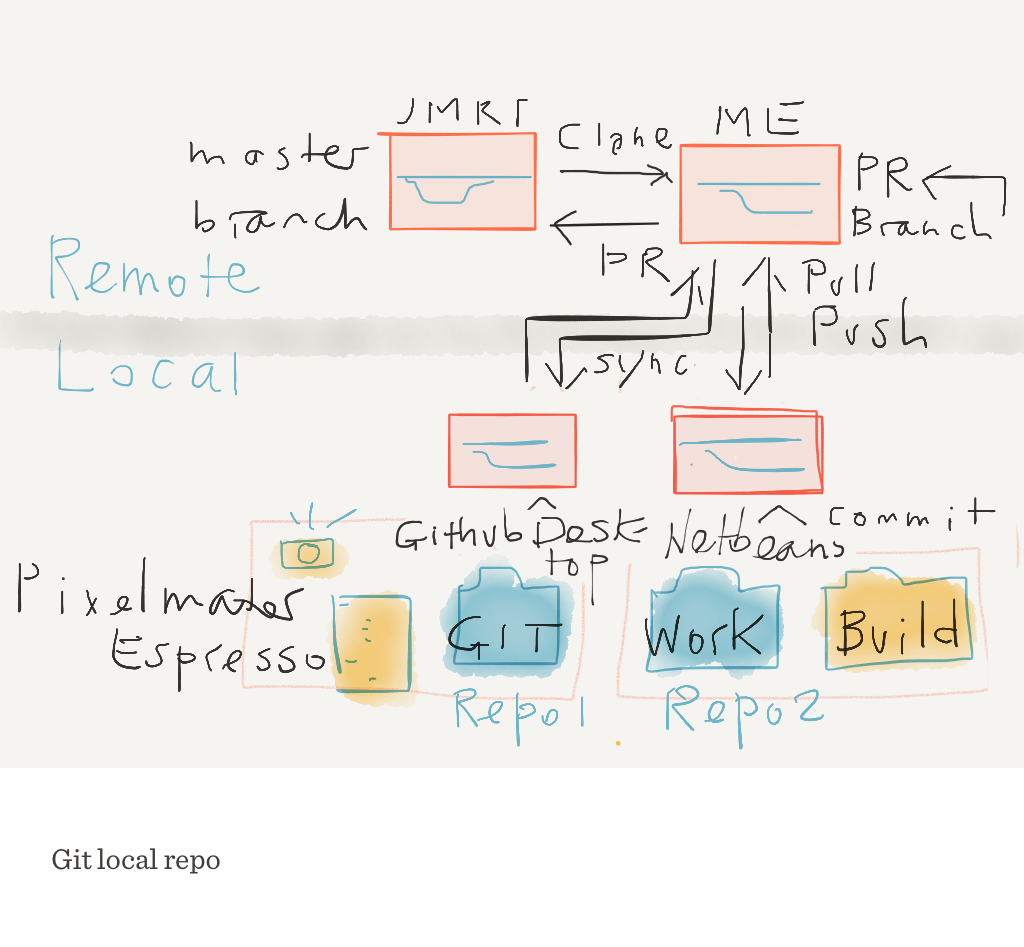 JMRI
ME
Clone
master
branch
PR
Branch
PR
Remote
Pull
Push
Local
sync
Github Desk
top
Netbeans
commit
Pixelmator
Espresso
GIT
Work
Build
Repo1
Repo2
Git local repo